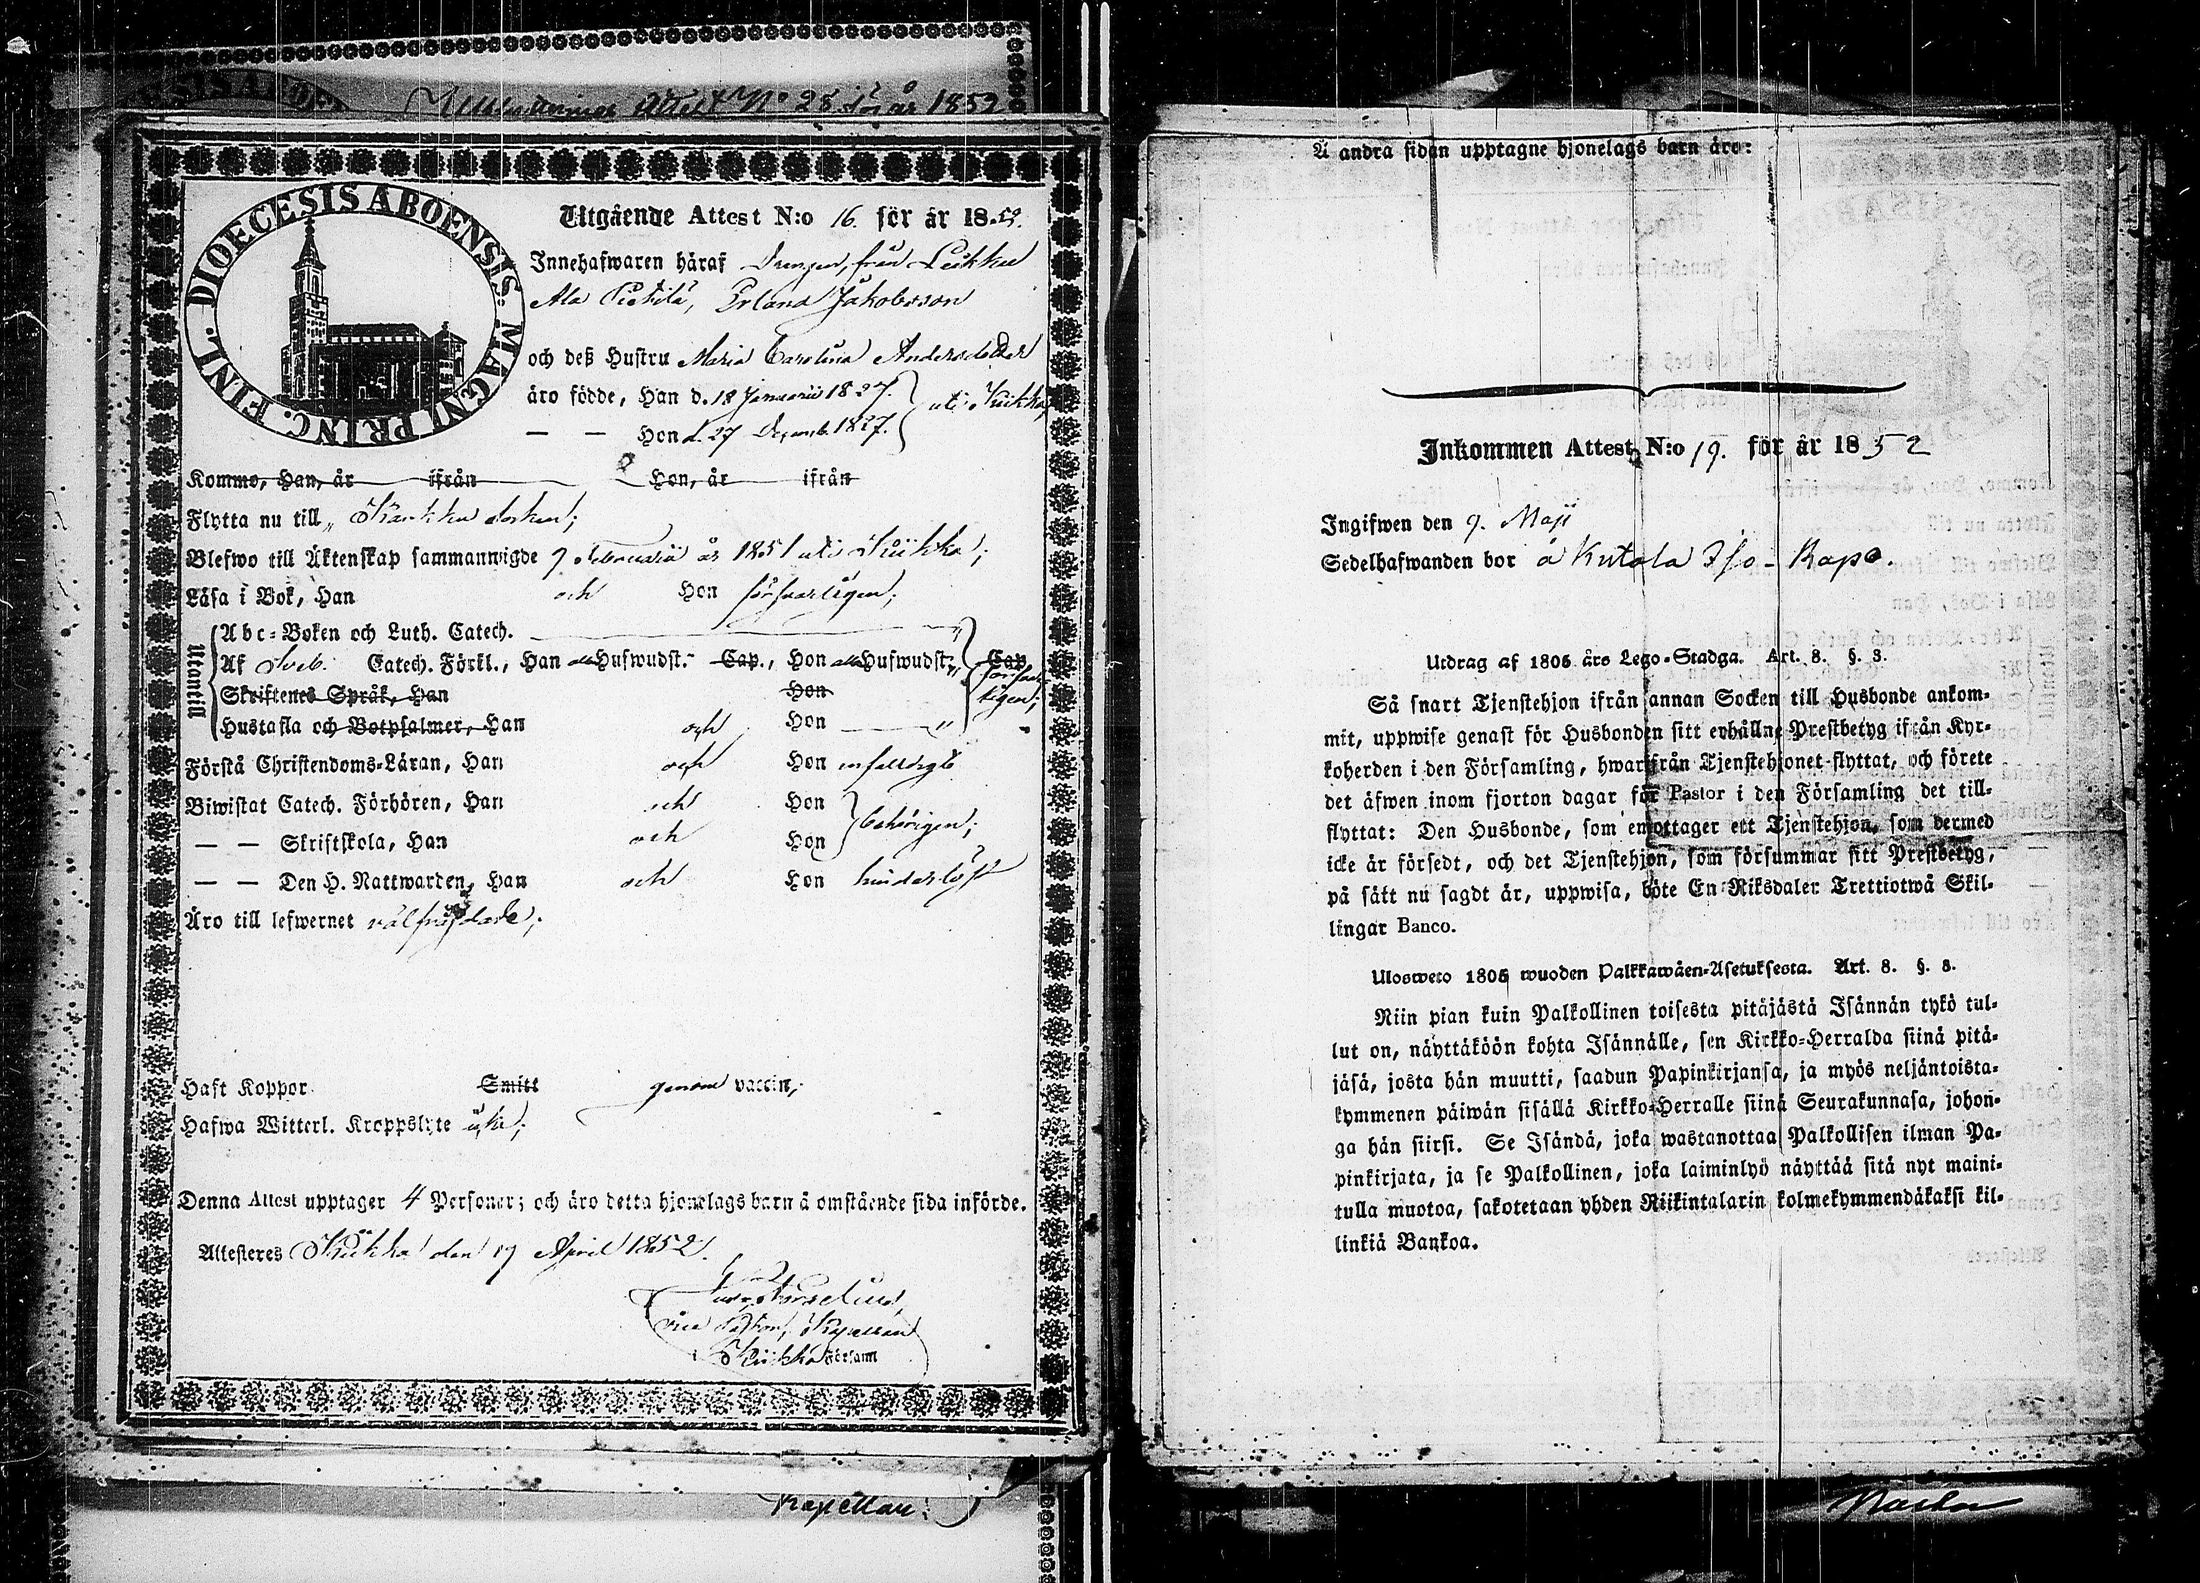 Attest No 28 för år 1852
DIOECESIS ABOENSIS. MAGNI PRINC. FINL.
Utgående Attest N:o 16. för år 1852.
Innehafwaren häraf Drengen, från Leikku
Ala Pietilä, Erland Jakobsson
och deß Hustru Maria Carolina Andersdotter
äro födde, Han d. 18 Januarii 1827. } uti Kiikka
— — Hon d. 27 Decemb. 1827.
Kommo, Han, år ifrån Hon, år ifrån
Flytta nu till Karkku socken;
Blefwo till Äktenskap sammanwigde 9 Februarii år 1851 uti Kiikka;
Läsa i Bok, Han och Hon försvarligen;
Utantill
Abc-Boken och Luth. Catech. — "
Af Sveb. Catech. Förkl., Han alla Hufwudst. Cap., Hon alla Hufwudst. Cap.
försvarligen;
Skriftenes Språk, Han Hon
Hustafla och Botpsalmer, Han och Hon — "
Förstå Christendoms-Läran, Han och Hon enfaldigt
Biwistat Catech. Förhören, Han och Hon
— — Skriftskola, Han och Hon } behörigen;
— — Den H. Nattwarden, Han och Hon hinderlöst
Äro till lefwernet välfräjdade;
Haft Koppor Smitt genom vaccin;
Hafwa Witterl. Kroppslyte icke;
Denna Attest upptager 4 Personer; och äro detta hjonelags barn å omstående sida införde.
Attesteres Kiikka den 19 April 1852.
vice Pastor, Kapellan
Kiikka Församl
Kapellan.
Å andra sidan upptagne hjonelags barn äro:
Inkommen Attest N:o 19. för år 1852
Ingifwen den 9. Maji
Sedelhafwanden bor å Kutala Iso-Rapo.
Utdrag af 1805 års Lego-Stadga. Art. 8. §. 8.
Så snart Tjenstehjon ifrån annan Socken till Husbonde ankom-
mit, uppwise genast för Husbonden sitt erhållne Prestbetyg ifrån Kyr-
koherden i den Församling, hwarifrån Tjenstehjonet flyttat, och förete
det äfwen inom fjorton dagar för Pastor i den Församling det till-
flyttat: Den Husbonde, som emottager ett Tjenstehjon, som dermed
icke är försedt, och det Tjenstehjon, som försummar sitt Prestbetyg,
på sätt nu sagdt är, uppwisa, böte En Riksdaler Trettiotwå Skil-
lingar Banco.
Ulosweto 1805 wuoden Palkkawäen-Asetuksesta. Art. 8. §. 8.
Niin pian kuin Palkollinen toisesta pitäjästä Isännän tykö tul-
lut on, näyttäköön kohta Isännälle, sen Kirkko-Herralda siinä pitä-
jäsä, josta hän muutti, saadun Papinkirjansa, ja myös neljäntoista-
kymmenen päiwän sisällä Kirkko-Herralle siinä Seurakunnasa, johon-
ga hän siirsi. Se Isändä, joka wastanottaa Palkollisen ilman Pa-
pinkirjata, ja se Palkollinen, joka laiminlyö näyttää sitä nyt maini-
tulla muotoa, sakotetaan yhden Riikintalarin kolmekymmendäkaksi kil-
linkiä Bankoa.